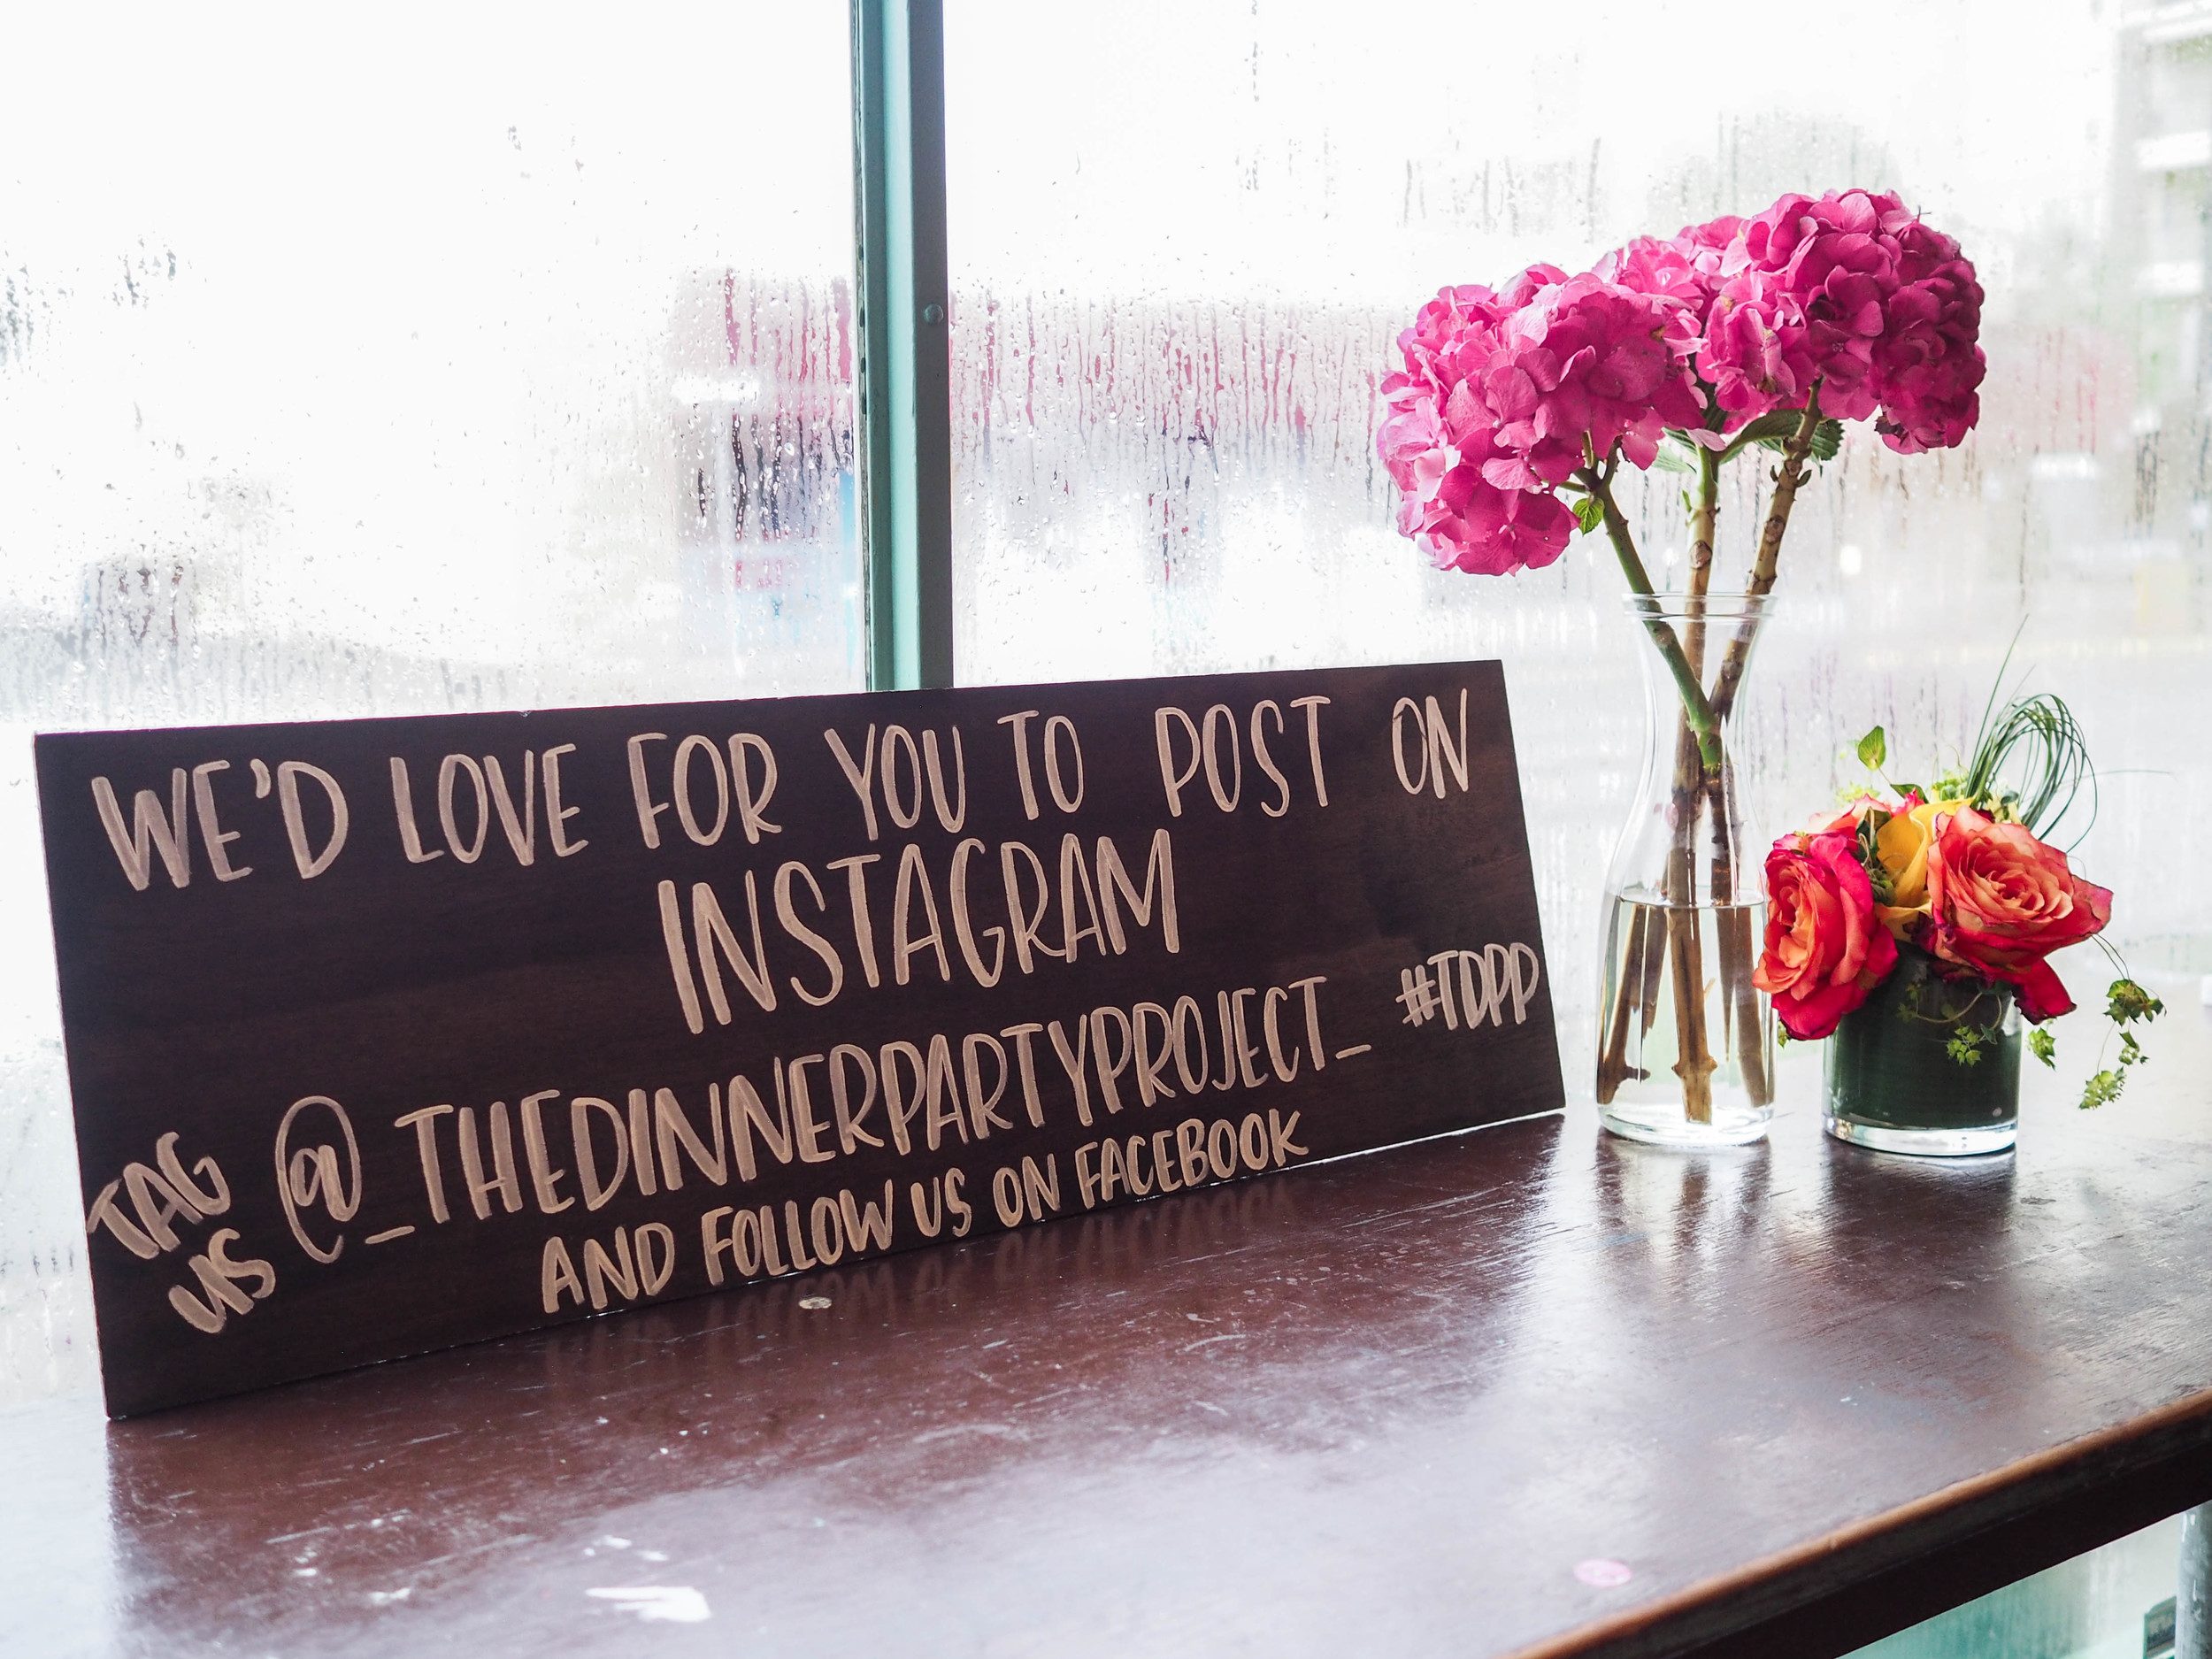 WE'D LOVE FOR YOU TO POST ON
INSTAGRAM
TAG US @_THEDINNERPARTYPROJECT_ #TDPP
AND FOLLOW US ON FACEBOOK